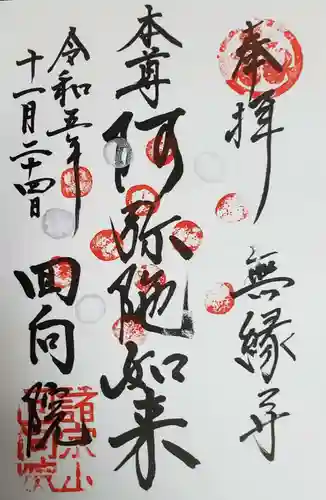 奉拝
無縁寺
本尊
阿弥陀如来
令和五年
十一月二十四日
回向院